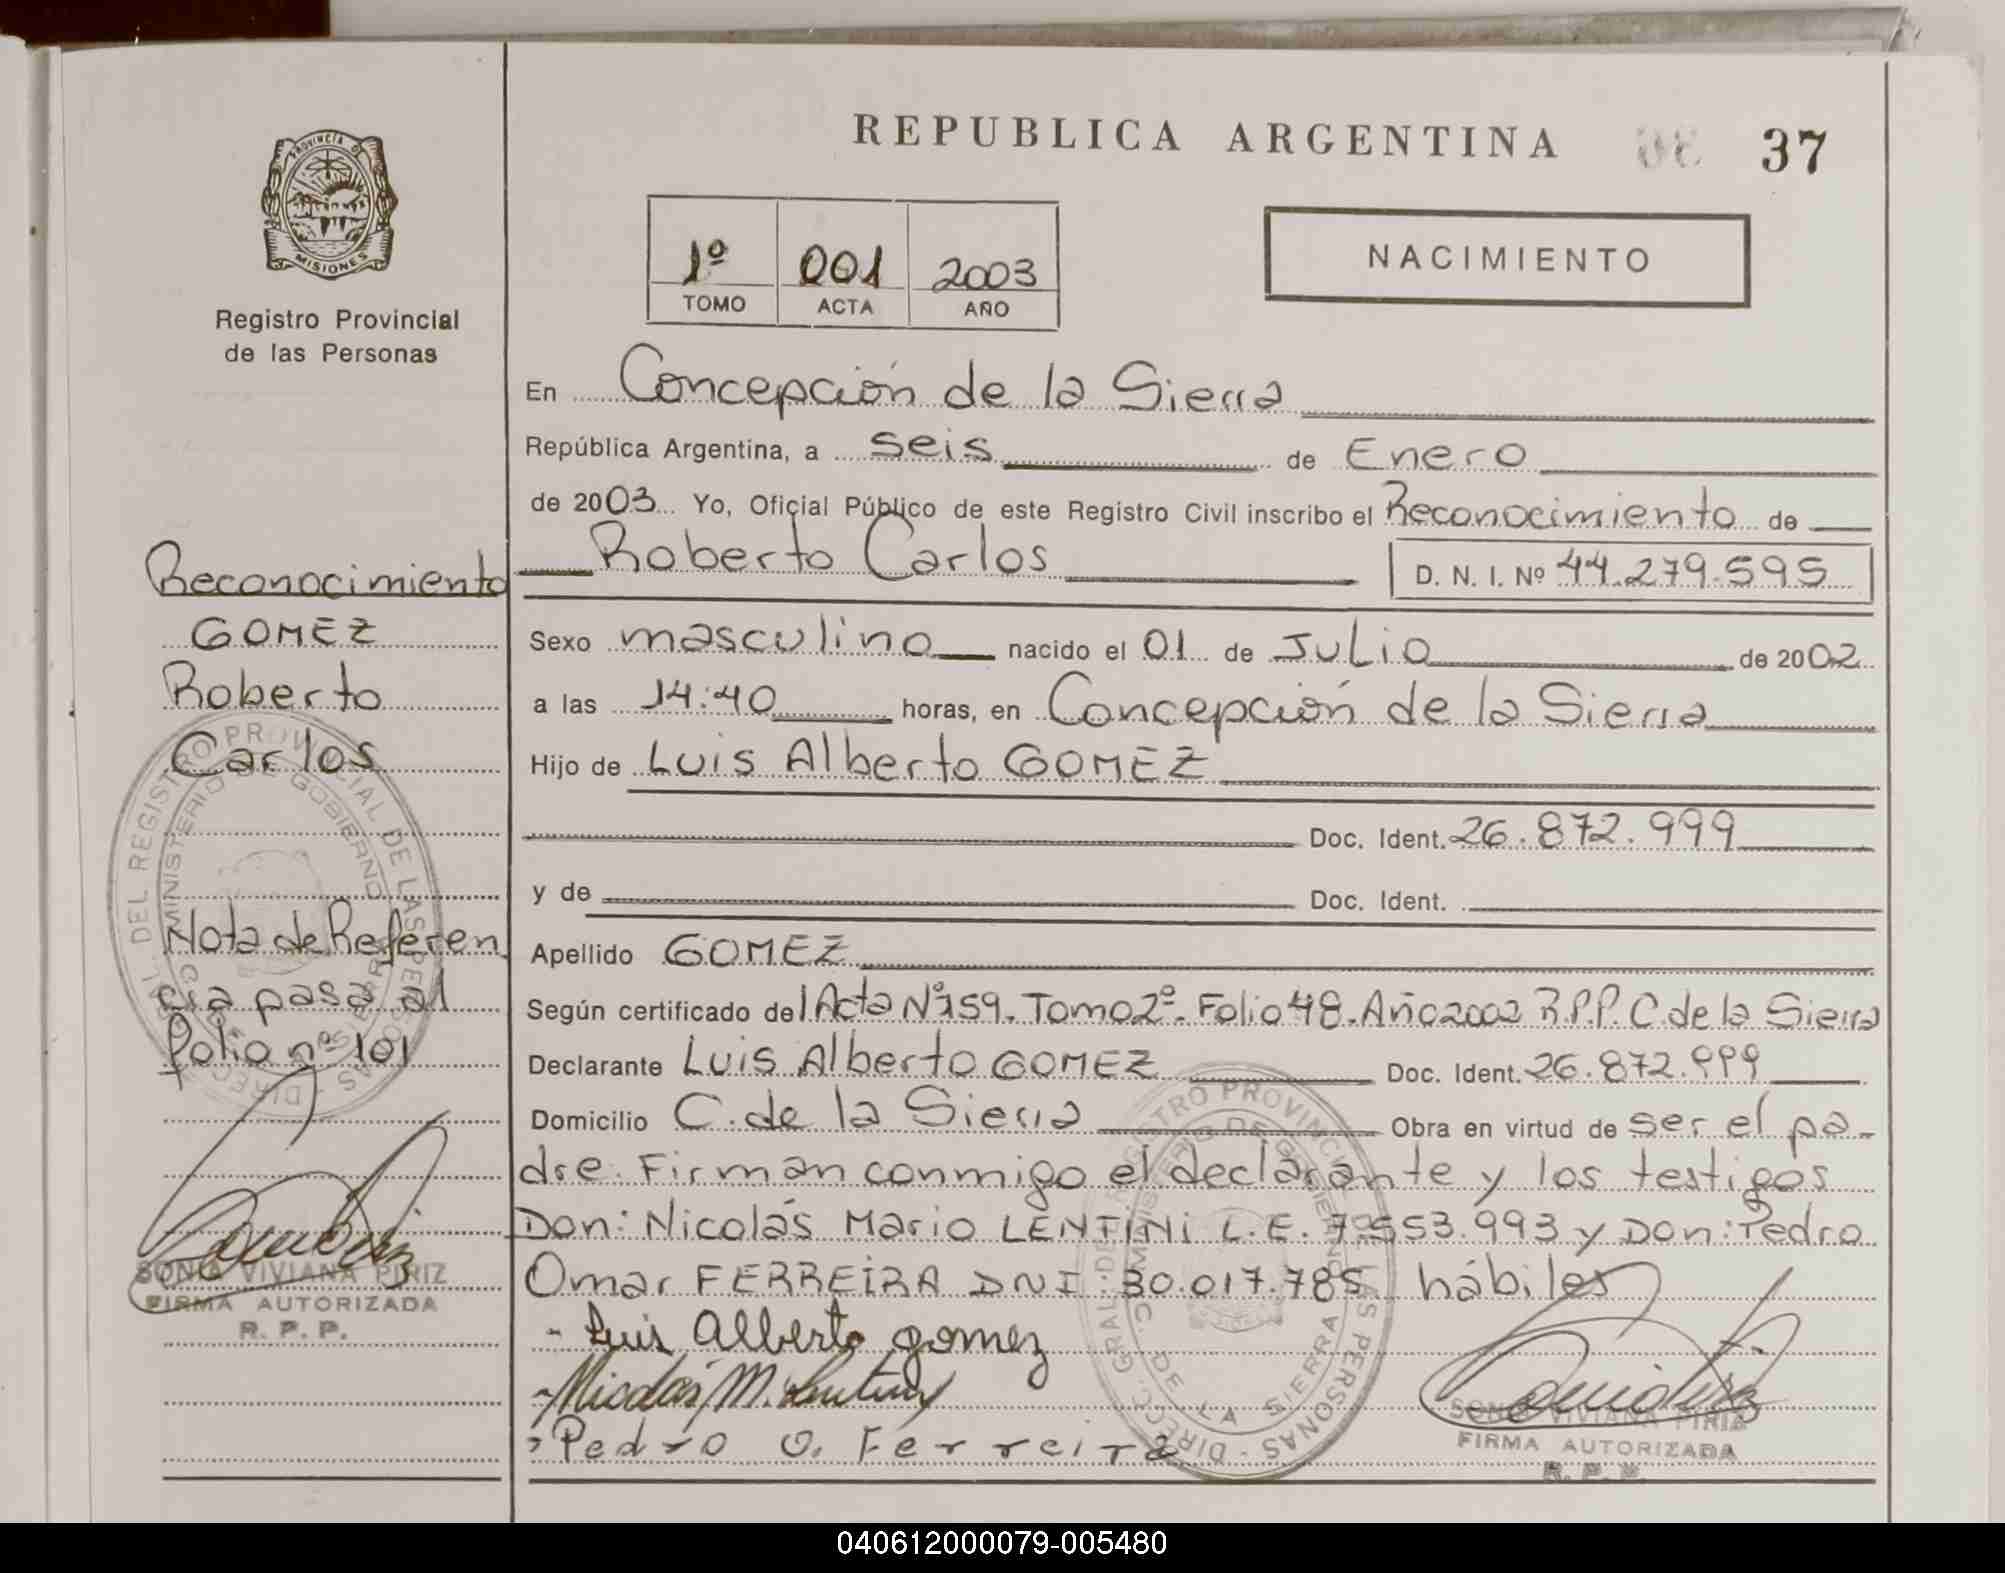 REPUBLICA ARGENTINA 37
PROVINCIA DE
MISIONES
Registro Provincial
de las Personas
1º 001 2003
TOMO ACTA AÑO
NACIMIENTO
En Concepción de la Sierra
República Argentina, a seis de Enero
de 2003 Yo, Oficial Público de este Registro Civil inscribo el Reconocimiento de
Roberto Carlos D. N. I. Nº 44.279.595
Sexo masculino nacido el 01 de Julio de 2002
a las 14:40 horas, en Concepción de la Sierra
Hijo de Luis Alberto GOMEZ
Doc. Ident. 26.872.999
y de Doc. Ident.
Apellido GOMEZ
Según certificado del Acta Nº 159. Tomo 2º. Folio 48. Año 2002 R.P.P. C. de la Sierra
Declarante Luis Alberto GOMEZ Doc. Ident. 26.872.999
Domicilio C. de la Sierra Obra en virtud de ser el pa-
dre. Firman conmigo el declarante y los testigos
Don: Nicolás Mario LENTINI L.E. 7.553.993 y Don: Pedro
Omar FERREIRA DNI 30.017.785 hábiles
- Luis Alberto gomez
- Nicolás M. Lentini
- Pedro O. Ferreira
SONIA VIVIANA PIRIZ
FIRMA AUTORIZADA
R. P. P.
Reconocimiento
GOMEZ
Roberto
Carlos
Nota de Referen
cia pasa al
folio nº 101
SONIA VIVIANA PIRIZ
FIRMA AUTORIZADA
R. P. P.
040612000079-005480